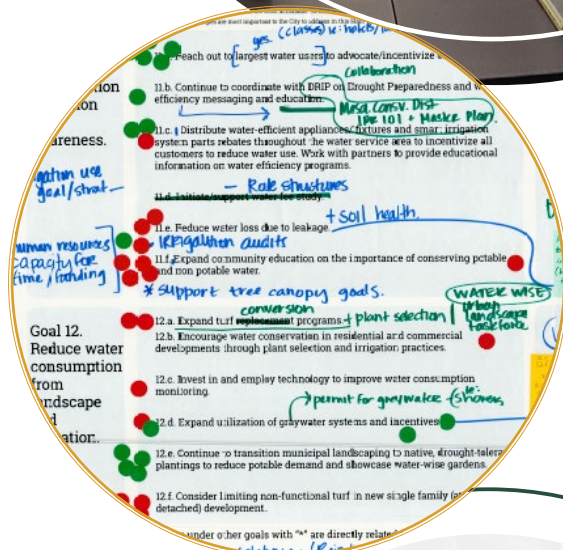 are most important to the City to address in this
yes. (classes) ie: hotels/
Reach out to [largest water users] to advocate/incentivize
Collaboration
11.b. Continue to coordinate with DRIP on Drought Preparedness and
efficiency messaging and education.
11.c. Distribute water-efficient appliances/fixtures and smart irrigation
system parts rebates throughout the water service area to incentivize all
customers to reduce water use. Work with partners to provide educational
information on water efficiency programs.
areness.
goal/strat
- Rate structures
11.d. Initiate/support water fee study.
+ Soil health.
11.e. Reduce water loss due to leakage.
human resources
capacity for
time, funding
IRRigation audits
11.f. Expand community education on the importance of conserving potable
and non potable water.
* Support tree canopy goals.
WATER WISE
conversion
12.a. Expand turf replacement programs. + plant selection
Urban
landscape
taskforce
12.b. Encourage water conservation in residential and commercial
developments through plant selection and irrigation practices.
Goal 12.
Reduce water
consumption
from
12.c. Invest in and employ technology to improve water consumption
monitoring.
permit for graywater
12.d. Expand utilization of graywater systems and incentives
12.e. Continue to transition municipal landscaping to native, drought-tolera
plantings to reduce potable demand and showcase water-wise gardens.
12.f. Consider limiting non-functional turf in new single family
detached) development.
under other goals with "*" are directly relate